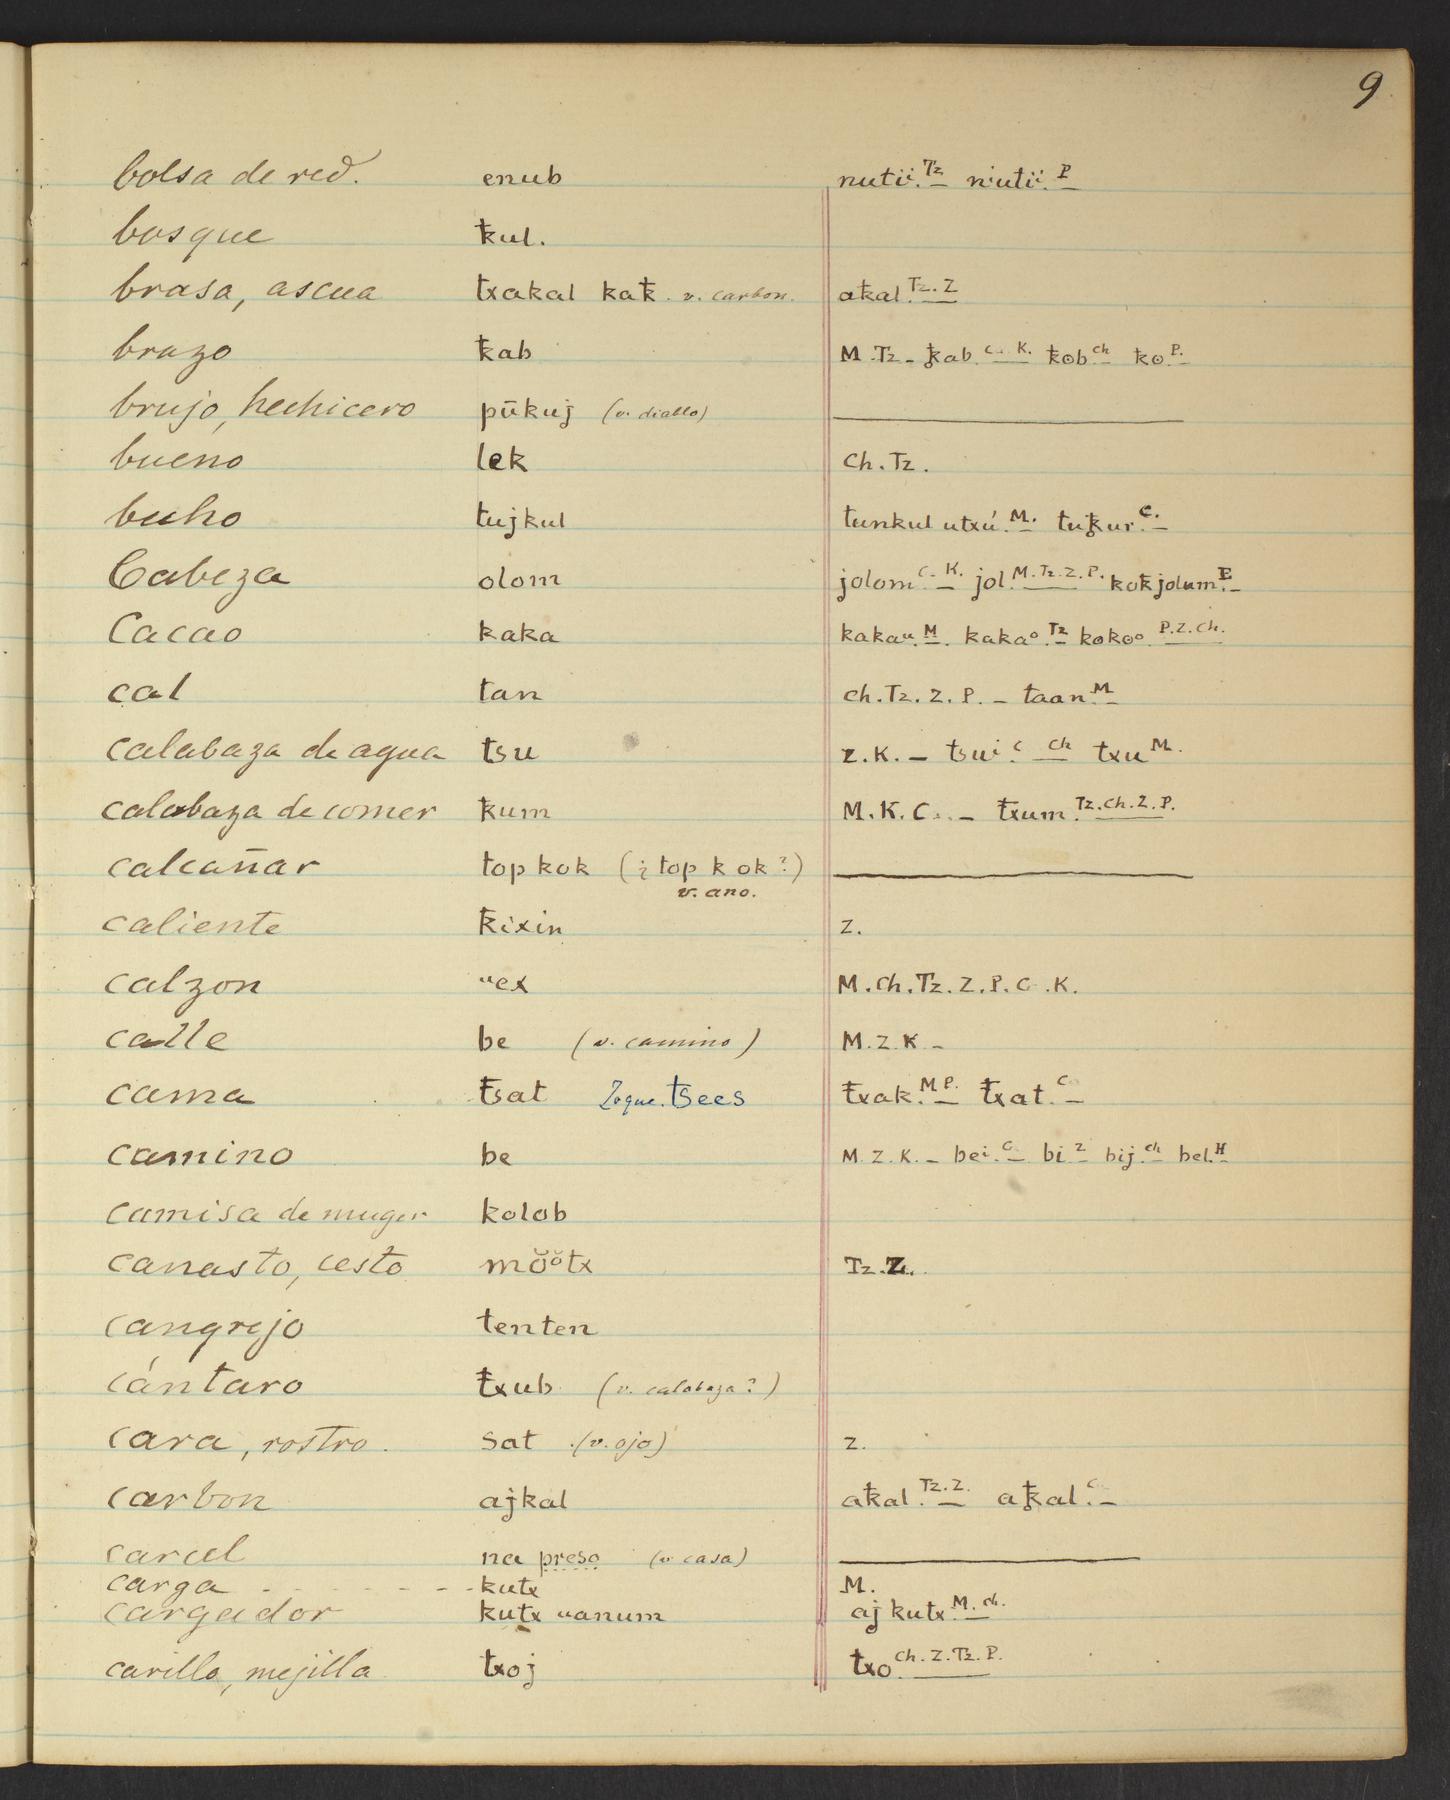 9
bolsa de red. enub nutiï. Tz n'utiï. P
bosque ŧkul.
brasa, ascua txakal kaŧk. v. carbon. aŧkal. Tz. Z
brazo ŧkab M. Tz - ŧkab. C. K. ŧkob ch ŧko P.
brujo, hechicero pūkuj (v. diablo)
bueno lek ch. Tz.
buho tujkul tunkul utxú. M. tuŧkur. C.
Cabeza olom jolom C. K. jol. M. Tz. Z. P. kokjolum. E
Cacao kaka kakau. M. kakao. Tz kokoo. P. Z. Ch.
cal tan ch. Tz. Z. P. - taan. M
calabaza de agua tsu Z. K. - tsui. C ch txu M.
calabaza de comer ŧkum M. K. C. - ŧxum. Tz. Ch. Z. P.
calcañar top kok (¿ top k ok?)
v. ano.
caliente ŧkixin Z.
calzon uex M. Ch. Tz. Z. P. C. K.
calle be (v. camino) M. Z. K -
cama ŧsat Zoque. ŧsees ŧxak. M P. ŧxat. C
camino be M. Z. K. - bei. C bi Z bij. ch bel. H
camisa de muger kolob
canasto, cesto mŏŏtx Tz. Z.
cangrejo tenten
cántaro ŧxub (v. calabaza?)
cara, rostro. sat (v. ojo) Z.
carbon ajkal aŧkal. Tz. Z. aŧkal. C
carcel na preso (v casa)
carga - - - - - kutx M.
cargador kutx uanum aj kutx. M. ch.
carillo, mejilla txoj txo. Ch. Z. Tz. P.